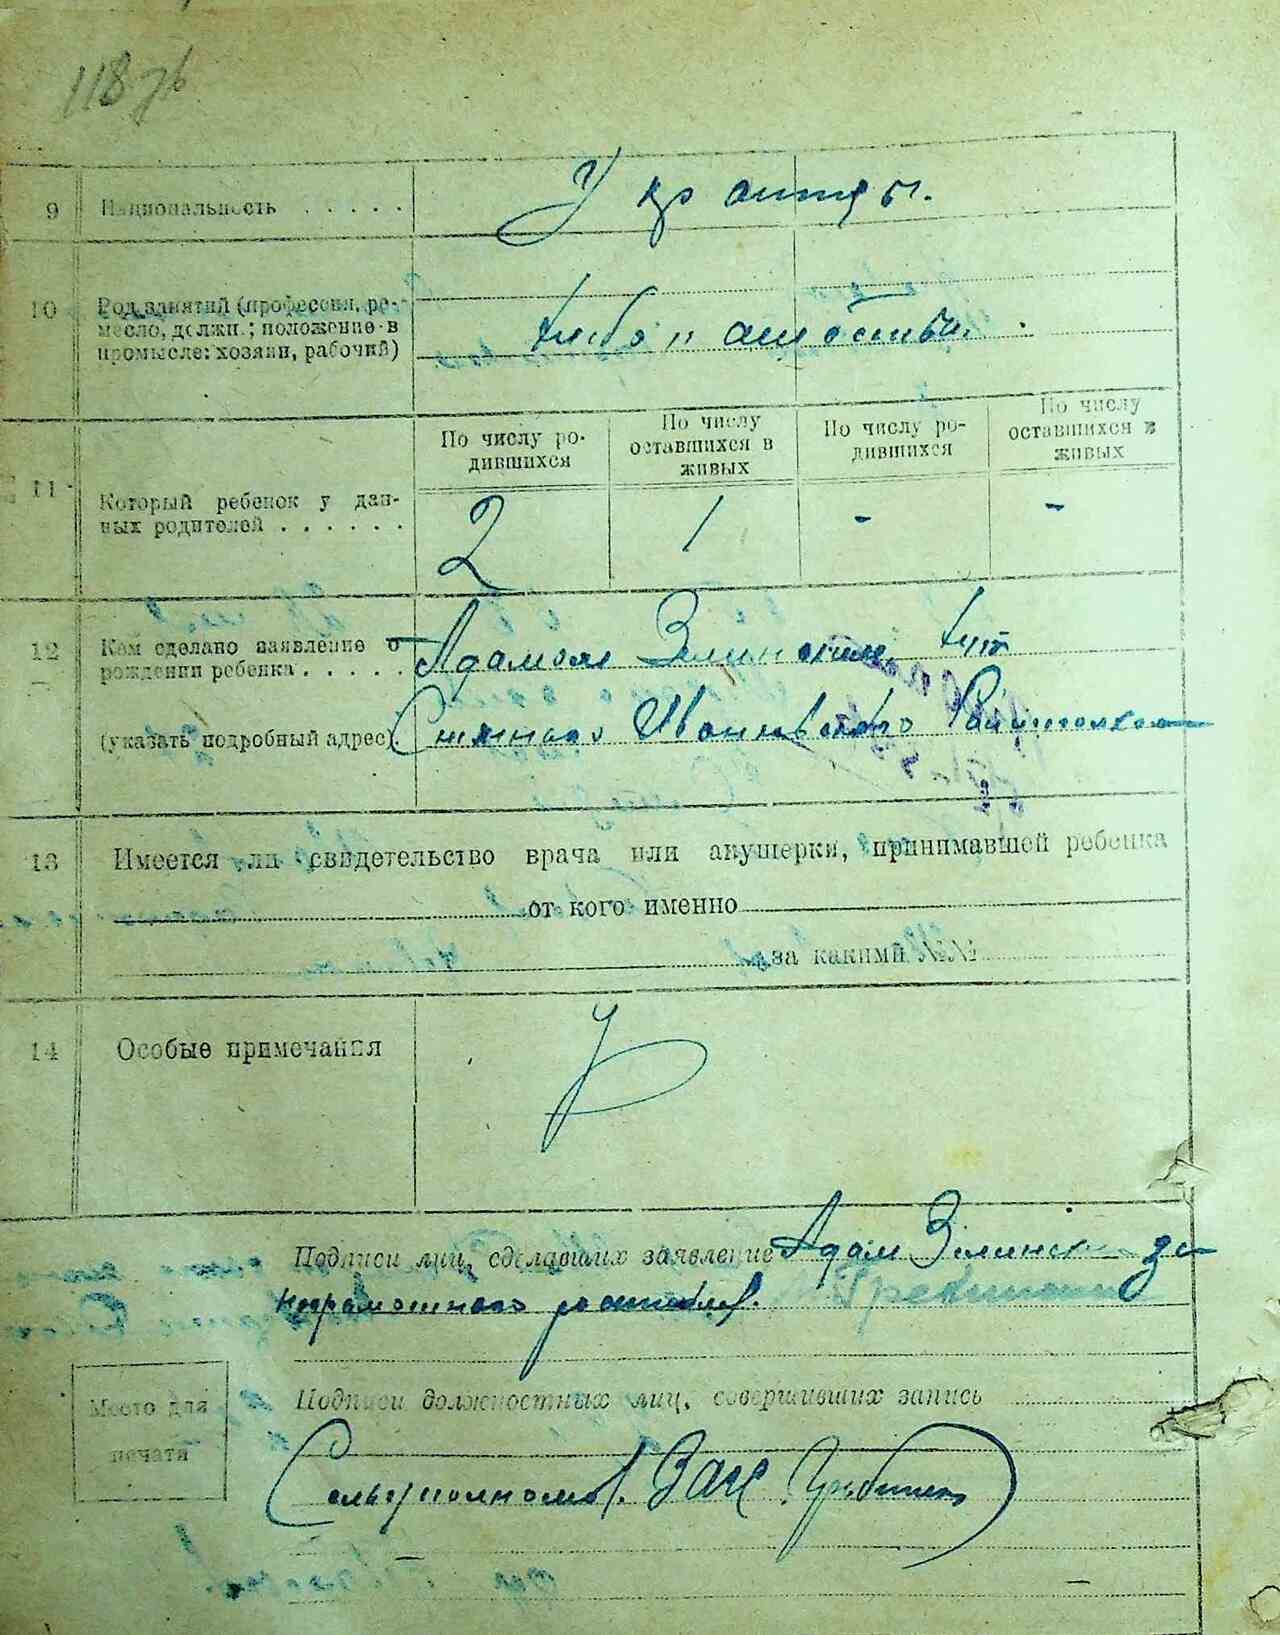 118 зв
9 Национальность . . . . . Украинцы.
10 Род занятий (профессия, ре-
месло, должн.; положение в
промысле: хозяин, рабочий)
11 Который ребенок у дан-
ных родителей . . . . . .
По числу ро-
дившихся
По числу
оставшихся в
живых
По числу ро-
дившихся
По числу
оставшихся в
живых
2 1 - -
12 Кем сделано заявление о
рождении ребенка . . . . . Адамом Зелинским
(указать подробный адрес) Ивановского
13 Имеется ли свидетельство врача или акушерки, принимавшей ребенка
от кого именно
за какими №№
14 Особые примечания
Подписи лиц, сделавших заявление Адам Зелинск за
неграмотного
Место для
печати
Подписи должностных лиц, совершивших запись
Сельуполномоч. Загс